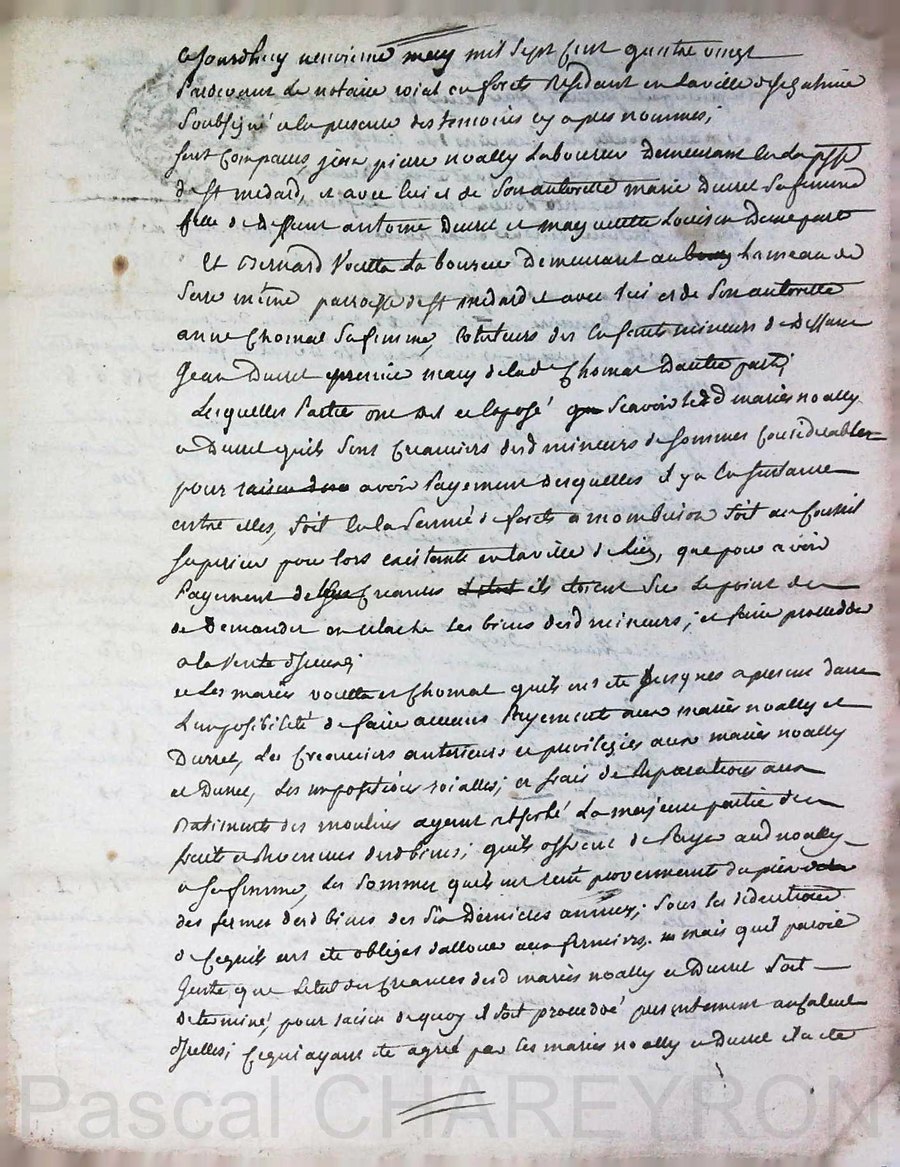 aJourdhuy neuvieme may mil sept cent quatre vingt
Pardevant Le notaire roial en forets Residant en la ville de st galmier
Soubsigné et la presence des temoins cy apres nommes;
sont Comparus, jean piere noally Laboureur Demeurant en la psse
de st medard, et avec lui et de son autoritté marie Durret sa femme
fille de deffunt antoine Durret et margueritte Louison Dune part
Et Bernard Voutta La boureur Demeurant au bourg hameau de
Serre même parroisse de st medard et avec lui et de son autoritté
anne Thomas sa femme, Cotuteurs des Enfants mineurs de Deffunt
Jean Durret premier mary de lade Thomas Dautre part;
Lesquelles Parties ont dit et Exposé que scavoir lesd mariés noally
et Durret quils sont Creanciers desd mineurs de sommes Considerables
pour raison avoir Payement desquelles il y a En instance
entre elles, soit En la senné de forets a monbrison soit au Conseil
superieur pour lors existante en la ville de Lion, que pour avoir
Payement de Creances ils etoient sur Le point de
de Demander en relache Les biens desd mineurs; et faire proceder
a la Vente diceux;
et Les mariés voutta et Thomas quils ont eté jusques a present dans
L'impossibilité de faire aucuns Payement aux mariés noally et
Durret, Les Creanciers anterieurs et privilegiés aux mariés noally
et Durret, Les impositions roialles; et frais de Reparations aux
Batiments des moulins ayant absorbé La majeure partie des
fruits et Revenues desd biens; quils offrent de Payer aud noally
et sa femme, Les Sommes quils ont provenants du prix
des fermes desd biens des six Dernieres années; sous les deductions
de Cequils ont eté obligés dallouer aux fermiers. mais quil paroit
Juste que Letat des Creances desd mariés noally et Durret soit
determiné, pour raison dequoy il soit procedé presentement au Calcul
dicelles; Cequi ayant eté agreé par Les mariés noally et Durret il a eté
Pascal CHAREYRON